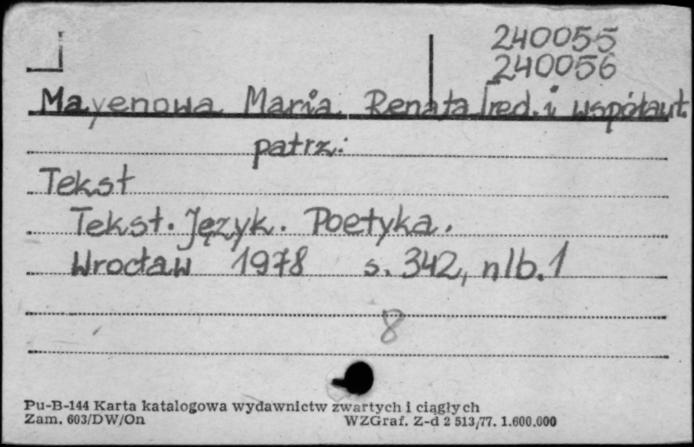 240055
240056
Mayenowa Maria Renata /red. i współaut.
patrz:
Tekst
Tekst. Język. Poetyka.
Wrocław 1978 s. 342, nlb. 1
8
Pu-B-144 Karta katalogowa wydawnictw zwartych i ciągłych
Zam. 603/DW/On WZGraf. Z-d 2 513/77. 1.600.000